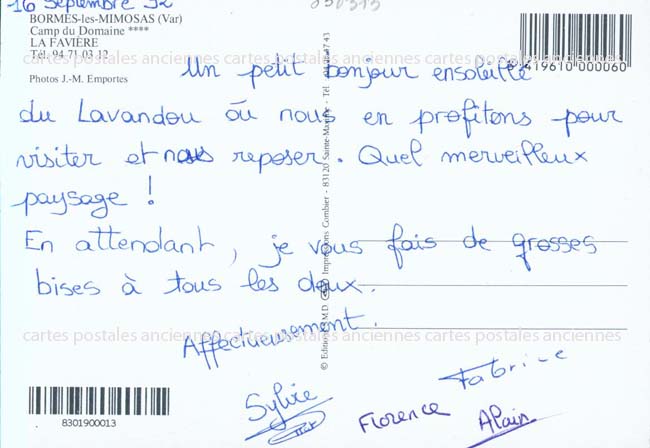 16 Septembre 92
BORMES-les-MIMOSAS (Var)
Camp du Domaine ****
LA FAVIÈRE
Tél. 04 71 03 12
Photos J.-M. Emportes
3 419610 000060
cartes postales anciennes cartes postales anciennes cartes postales anciennes
Un petit bonjour ensoleillé
du Lavandou où nous en profitons pour
visiter et nous reposer. Quel merveilleux
paysage !
En attendant, je vous fais de grosses
bises à tous les deux.
Affectueusement.
cartes postales anciennes cartes postales anciennes cartes postales anciennes
Sylvie
Florence
Fabrice
Alain
8301900013
© Editions Impressions Combier - 83120 Sainte-Maxime - Tél.